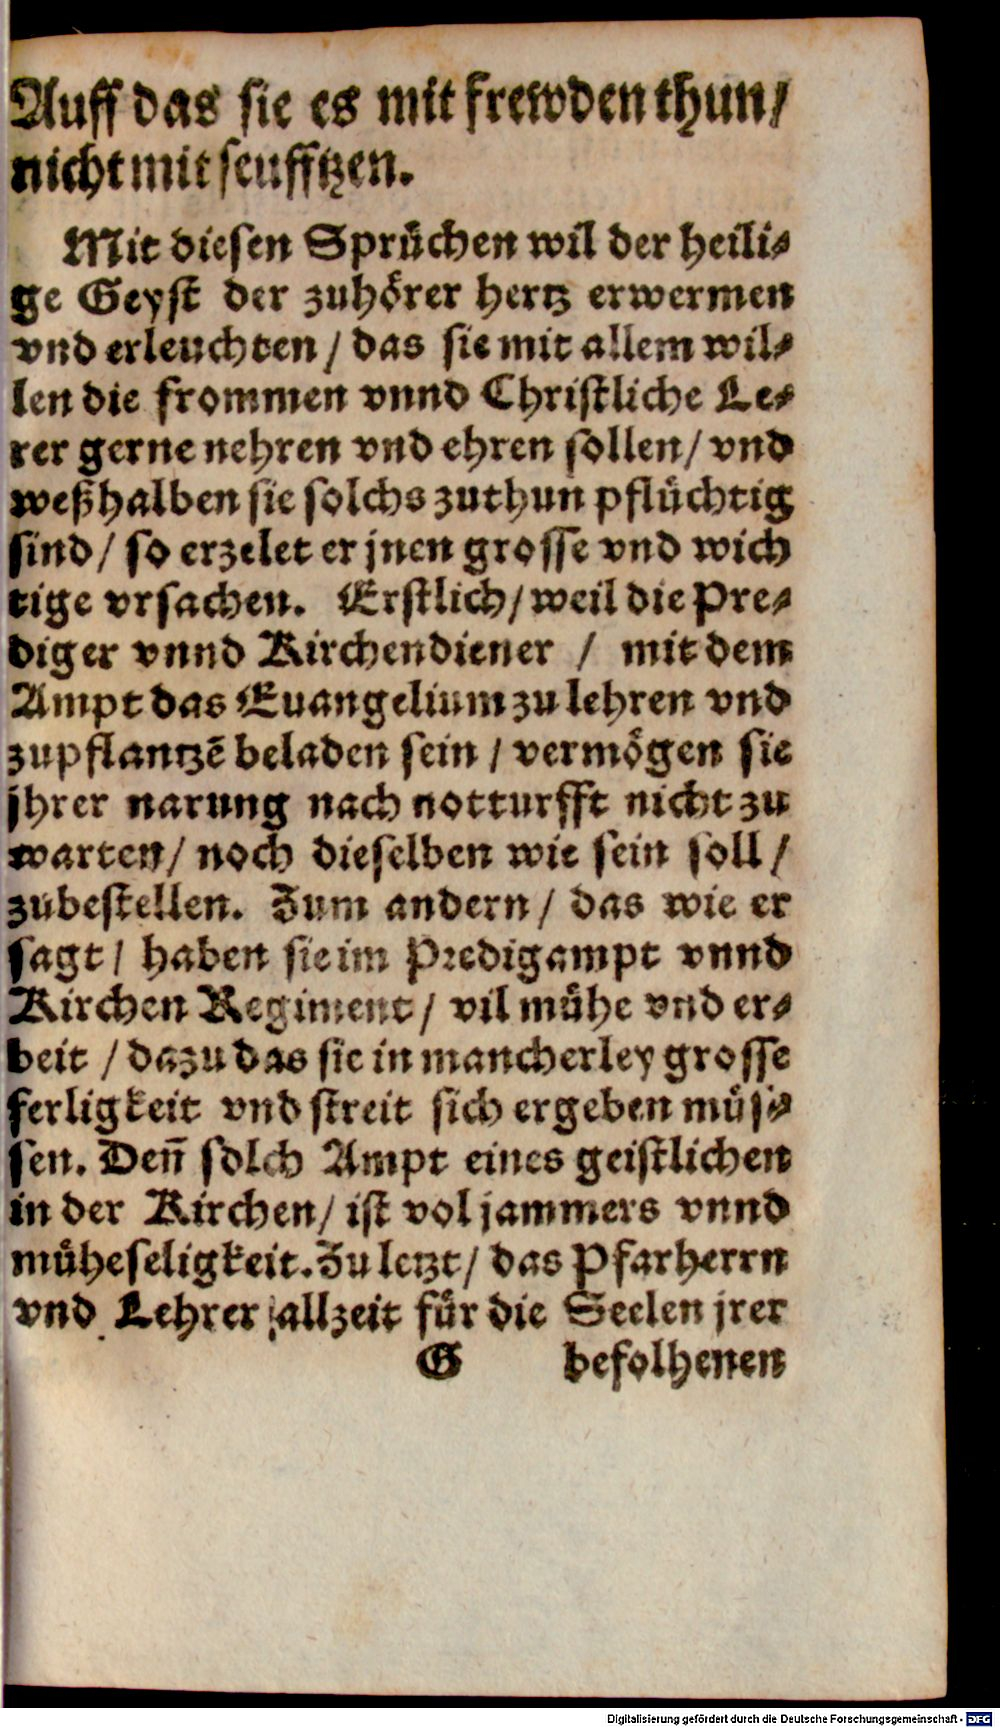 Auff das sie es mit frewden thun/
nicht mit seufftzen.
Mit diesen Sprüchen wil der heili⸗
ge Geyst der zuhörer hertz erwermen
vnd erleuchten / das sie mit allem wil⸗
len die frommen vnnd Christliche Le⸗
rer gerne nehren vnd ehren sollen/ vnd
weßhalben sie solchs zuthun pflüchtig
sind/ so erzelet er jnen grosse vnd wich
tige vrsachen. Erstlich/ weil die Pre⸗
diger vnnd Kirchendiener / mit dem
Ampt das Euangelium zu lehren vnd
zupflantzē beladen sein / vermögen sie
jhrer narung nach notturfft nicht zu
warten/ noch dieselben wie sein soll/
zubestellen. Zum andern/ das wie er
sagt/ haben sie im Predigampt vnnd
Kirchen Regiment/ vil mühe vnd er⸗
beit / dazu das sie in mancherley grosse
ferligkeit vnd streit sich ergeben müs⸗
sen. Deñ solch Ampt eines geistlichen
in der Kirchen/ ist vol jammers vnnd
müheseligkeit. Zu letzt/ das Pfarherrn
vnd Lehrer allzeit für die Seelen jrer
G befolhenen
Digitalisierung gefördert durch die Deutsche Forschungsgemeinschaft - DFG